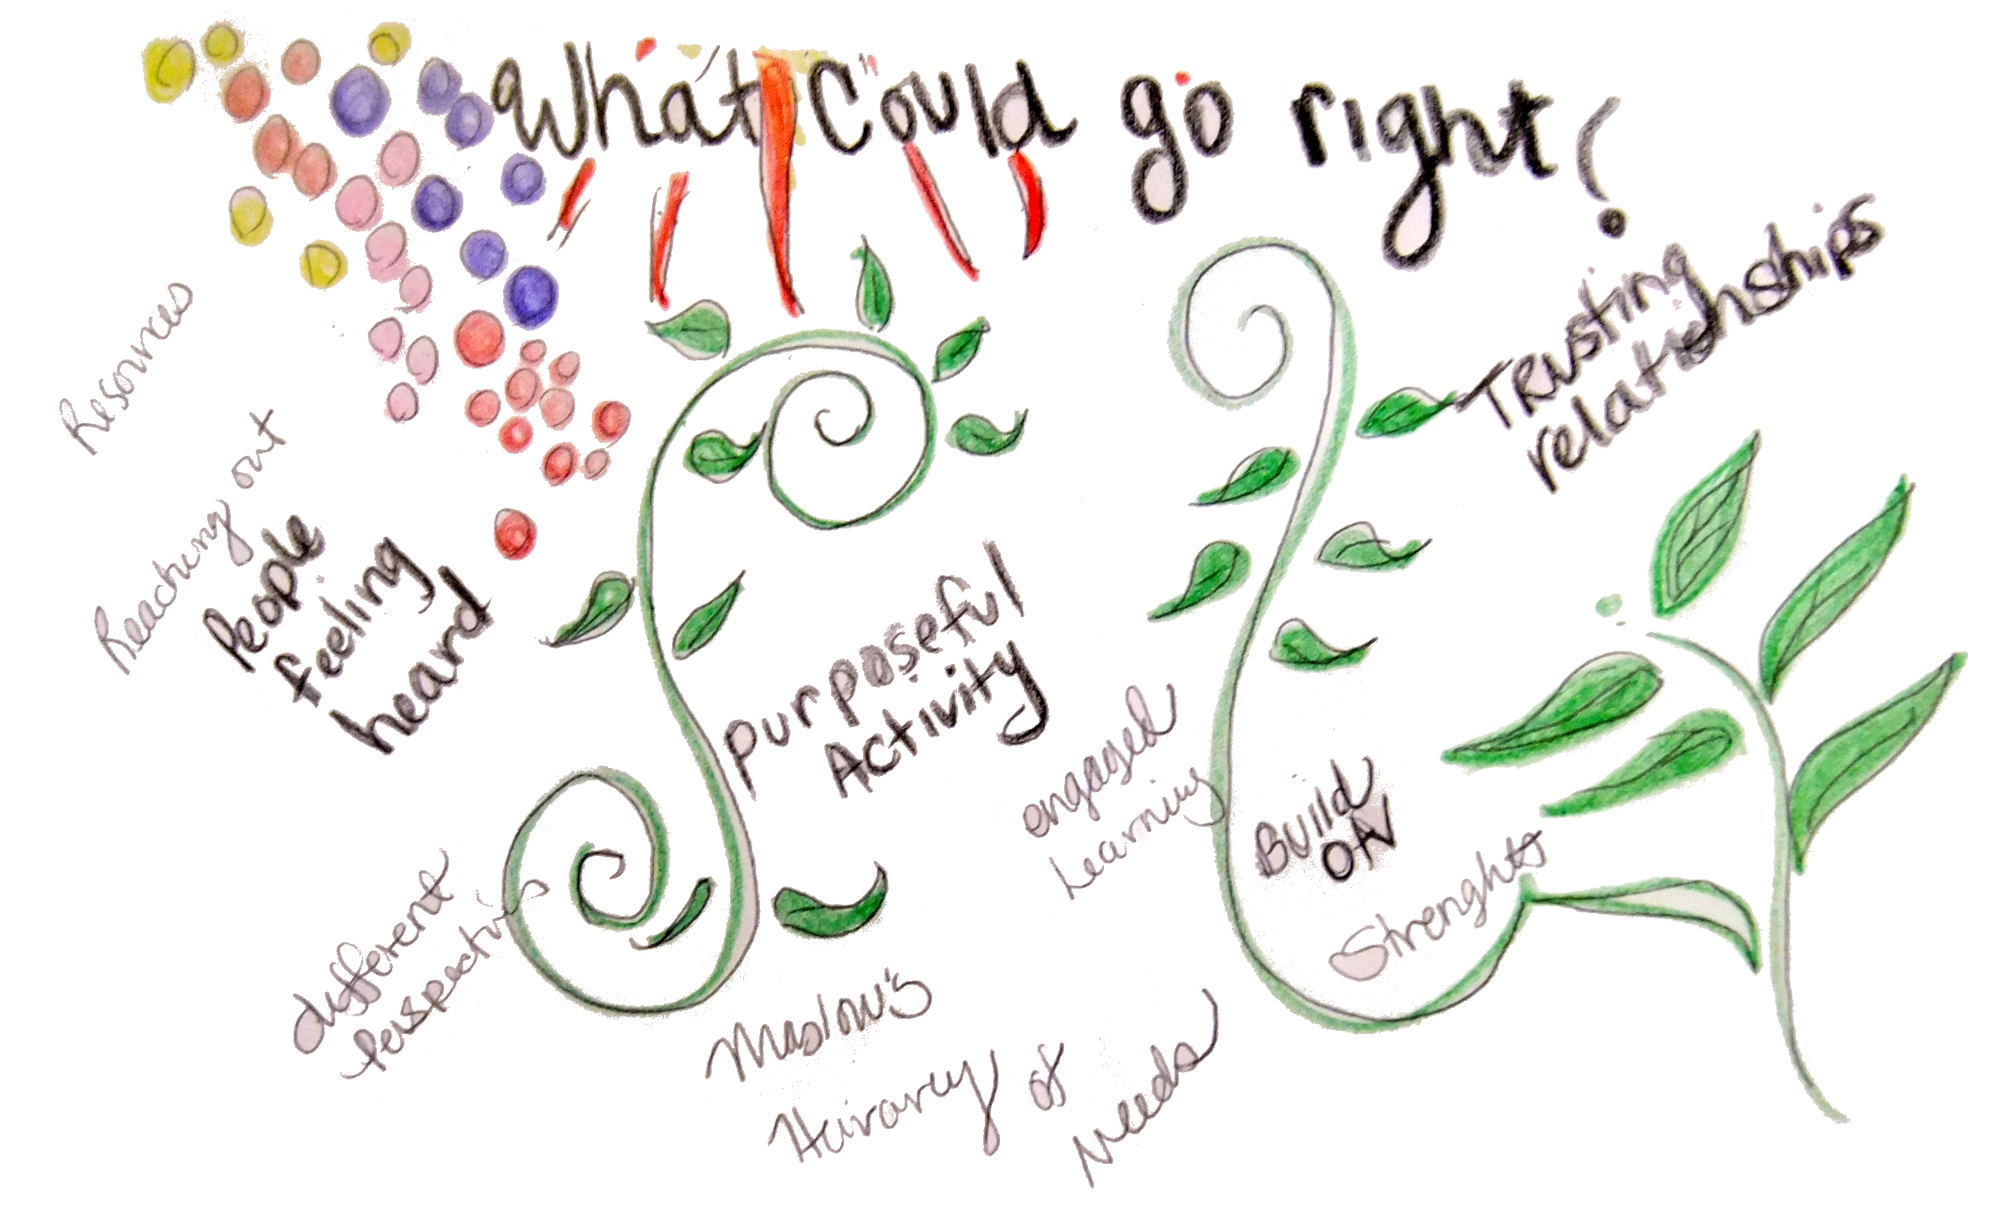 What Could go right?
Trusting
relationships
Resources
Reaching out
People
feeling
heard
purposeful
Activity
engaged
Learning
Build
ON
Strenghts
different
Perspectives
Maslow's
Heirarcy of
Needs